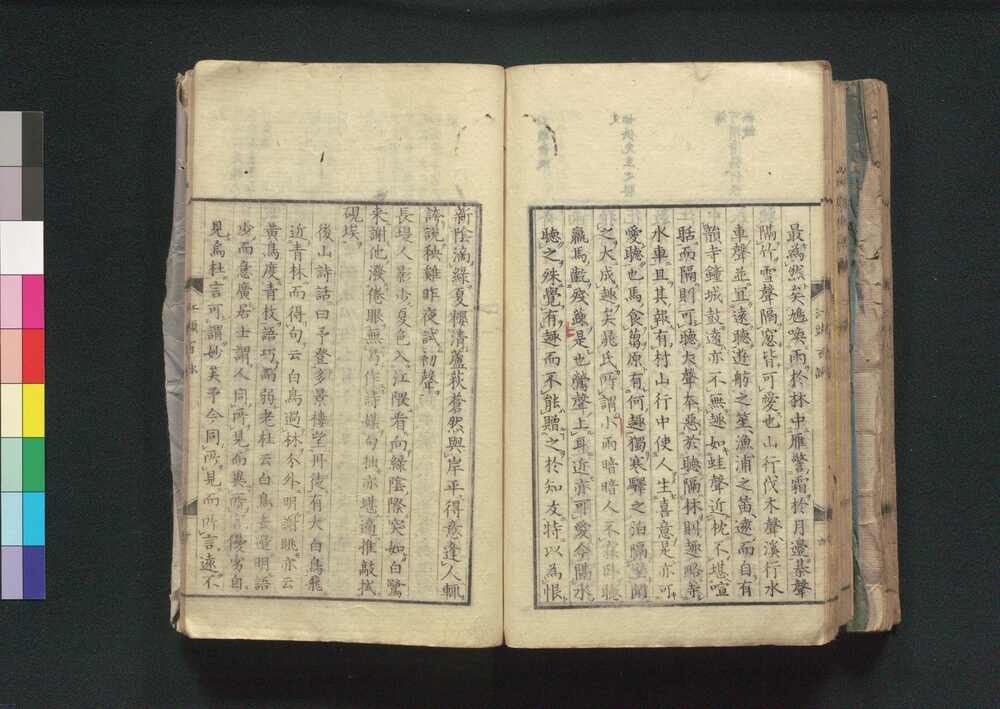 最爲然矣鳩喚雨於林中雁警霜於月邊棊聲
隔竹雪聲隔窓皆可愛也山行伐木聲溪行水
車聲並宜遠聽遊舫之笙漁浦之笛遠而自有
韻寺鐘城鼓遠亦不無趣如蛙聲近枕不堪喧
聒而隔則可聽大聲本惡於聽隔林則趣略等
水車且其報有村山行中使人生喜意是亦可
愛聽也馬食萁原有何趣獨寒驛之泊隔壁聞
之大成趣矣晁氏所謂小雨暗暗人不寐臥聽
羸馬齕殘蔬是也鶯聲上耳近亦可愛今隔水
聽之殊覺有趣而不能贈之於知友特以爲恨
新陰滿綠夏穫清蘆荻蒼然與岸平得意逢人輒
誇說秧雞昨夜試初聲
長堤人影少夏色入江隈看向綠陰際突如白鷺
來謝他潑倦眼無爲作詩媒句拙亦堪適推敲拭
硯埃
後山詩話曰予登多景樓望丹徒有大白鳥飛
近青林而得句云白鳥過林分外明謝朓亦云
黃鳥度青枝語巧而弱老杜云白鳥去邊明語
少而意廣
見爲杜言可謂妙矣予今同所見而所言遠不